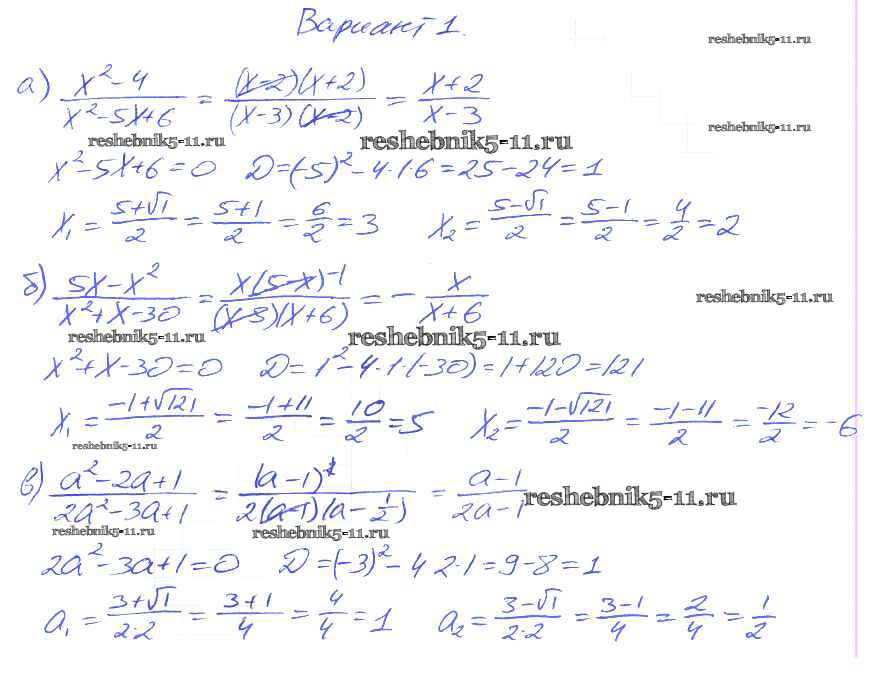 Вариант 1.
reshebnik5-11.ru
а) (x²-4)/(x²-5x+6) = ((x-2)(x+2))/((x-3)(x-2)) = (x+2)/(x-3)
reshebnik5-11.ru
reshebnik5-11.ru reshebnik5-11.ru
x²-5x+6=0 D=(-5)²-4·1·6=25-24=1
x₁ = (5+√1)/2 = (5+1)/2 = 6/2 = 3 x₂ = (5-√1)/2 = (5-1)/2 = 4/2 = 2
б) (5x-x²)/(x²+x-30) = (x(5-x)⁻¹)/((x-5)(x+6)) = - x/(x+6)
reshebnik5-11.ru
reshebnik5-11.ru reshebnik5-11.ru
x²+x-30=0 D=1²-4·1·(-30)=1+120=121
x₁ = (-1+√121)/2 = (-1+11)/2 = 10/2 = 5 x₂ = (-1-√121)/2 = (-1-11)/2 = -12/2 = -6
reshebnik5-11.ru
в) (a²-2a+1)/(2a²-3a+1) = (a-1)²/(2(a-1)(a-1/2)) = (a-1)/(2a-1)
reshebnik5-11.ru
reshebnik5-11.ru reshebnik5-11.ru
2a²-3a+1=0 D=(-3)²-4 2·1=9-8=1
a₁ = (3+√1)/(2·2) = (3+1)/4 = 4/4 = 1 a₂ = (3-√1)/(2·2) = (3-1)/4 = 2/4 = 1/2